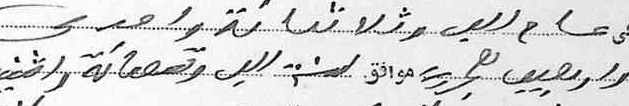 في عام الف وثلاثمائة واحدى
واربعين هجرية موافق لسنة الف وتسعمائة واثنين